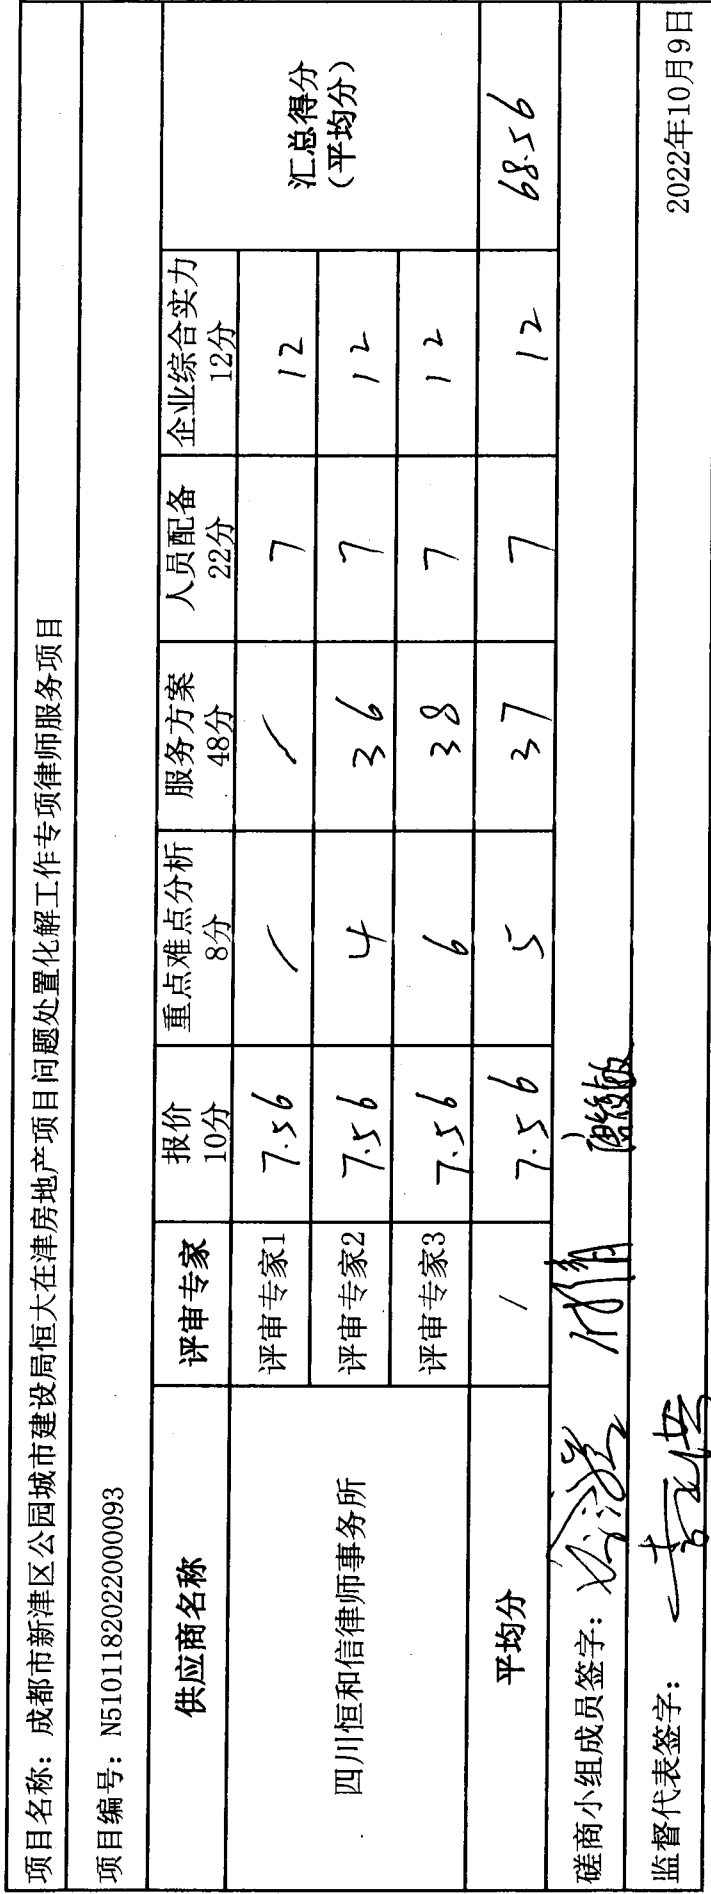 项目名称：成都市新津区公园城市建设局恒大在津房地产项目问题处置化解工作专项律师服务项目
项目编号：N5101182022000093
供应商名称 评审专家 报价 10分 重点难点分析 8分 服务方案 48分 人员配备 22分 企业综合实力 12分 汇总得分（平均分）
四川恒和信律师事务所
评审专家1 7.56 / / 7 12
评审专家2 7.56 4 36 7 12
评审专家3 7.56 6 38 7 12
平均分 / 7.56 5 37 7 12 68.56
磋商小组成员签字：
监督代表签字：
2022年10月9日